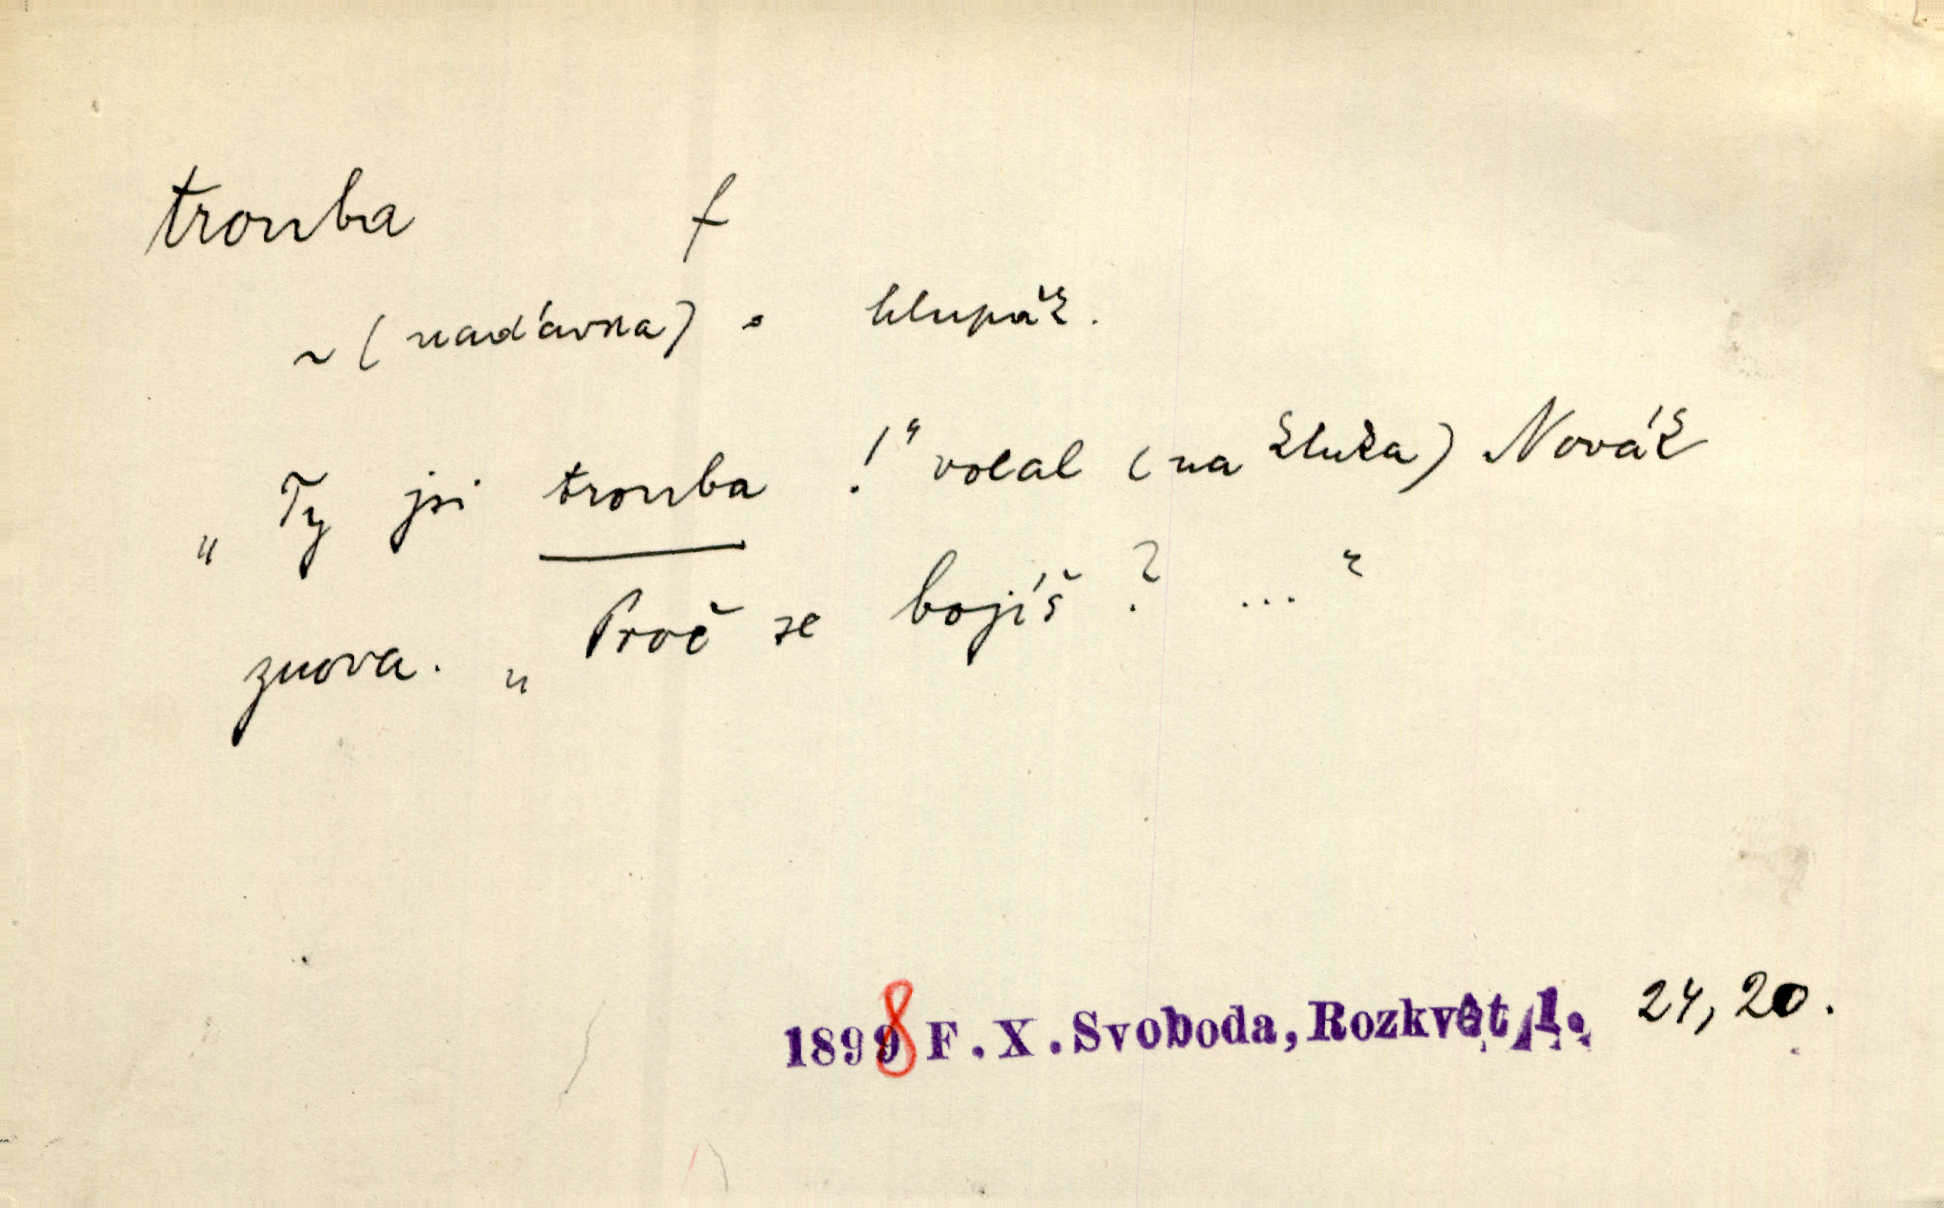 trouba f
~ (nadávka) = hlupák.
„Ty jsi trouba!" volal (na kluka) Novák
znova. „Proč se bojíš? ..."
1898 F. X. Svoboda, Rozkvět, 1. 24, 20.